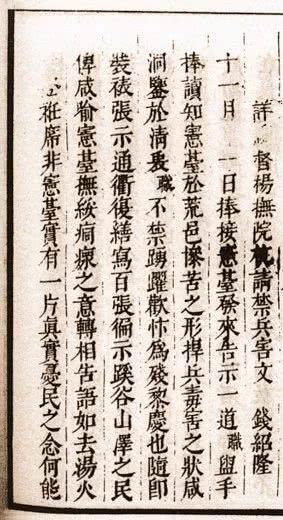 詳督楊撫院請禁兵害文 錢紹隆
十一月一日捧接憲臺發來告示一道職盥手
捧讀知憲臺於荒邑慘苦之形悍兵毒害之狀咸
洞鑒於清衷職不禁踴躍歡忭為殘黎慶也隨卽
裝裱張示通衢復繕寫百張徧示谿谷山澤之民
俾咸喻憲臺撫綏痌瘝之意轉相告語如去湯火
袵席非憲臺實有一片真實憂民之念何能